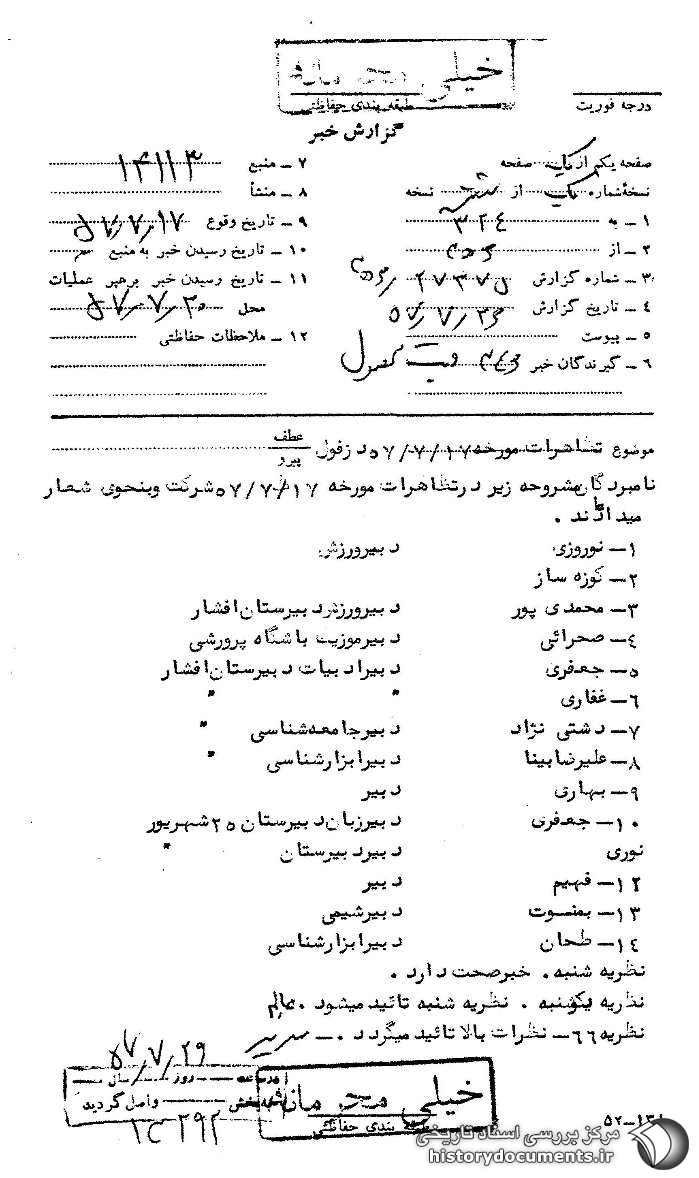 خیلی محرمانه
طبقه بندی حفاظتی
درجه فوریت
گزارش خبر
صفحه یکم از یک صفحه
نسخهٔ شماره یک از نسخه
۱ ـ به ۳۲٤
۲ ـ از
۳ ـ شماره گزارش
٤ ـ تاریخ گزارش
۵ ـ پیوست
۶ ـ گیرندگان خبر
۷ ـ منبع ۱۴۱۱۳
۸ ـ منشأ
۹ ـ تاریخ وقوع ۵۷/۷/۱۷
۱۰ ـ تاریخ رسیدن خبر به منبع
۱۱ ـ تاریخ رسیدن خبر برهبر عملیات
محل ۵۷/۷/۲۰
۱۲ ـ ملاحظات حفاظتی
موضوع تظاهرات مورخه ۵۷/۷/۱۷ دزفول
عطف
پیرو
نامبردگان مشروحه زیر درتظاهرات مورخه ۵۷/۷/۱۷ شرکت وبنحوی شعار
میدادند .
۱ـ نوروزی دبیرورزش
۲ـ کوزه ساز
۳ـ محمدی پور دبیرورزش دبیرستان افشار
٤ـ صحرائی دبیرموزیک باشگاه پرورشی
۵ـ جعفری دبیرادبیات دبیرستان افشار
۶ـ غفاری " "
۷ـ دشتی نژاد دبیرجامعه شناسی "
۸ـ علیرضا بینا دبیرابزارشناسی "
۹ـ بهاری دبیر
۱۰ـ جعفری دبیرزبان دبیرستان ۲۵ شهریور
نوری دبیردبیرستان "
۱۲ـ فهیم دبیر
۱۳ـ بمنسوت دبیرشیمی
۱٤ـ طحان دبیرابزارشناسی
نظریه شنبه . خبرصحت دارد .
نظریه یکشنبه . نظریه شنبه تائید میشود . عالم
نظریه ۶۶ـ نظرات بالا تائید میگردد .ـ
۵۷/۷/۲۹
درساعت روز سال
به بخش واصل گردید
خیلی محرمانه
طبقه بندی حفاظتی
۵۲ـ۱۳۱
مرکز بررسی اسناد تاریخی
historydocuments.ir